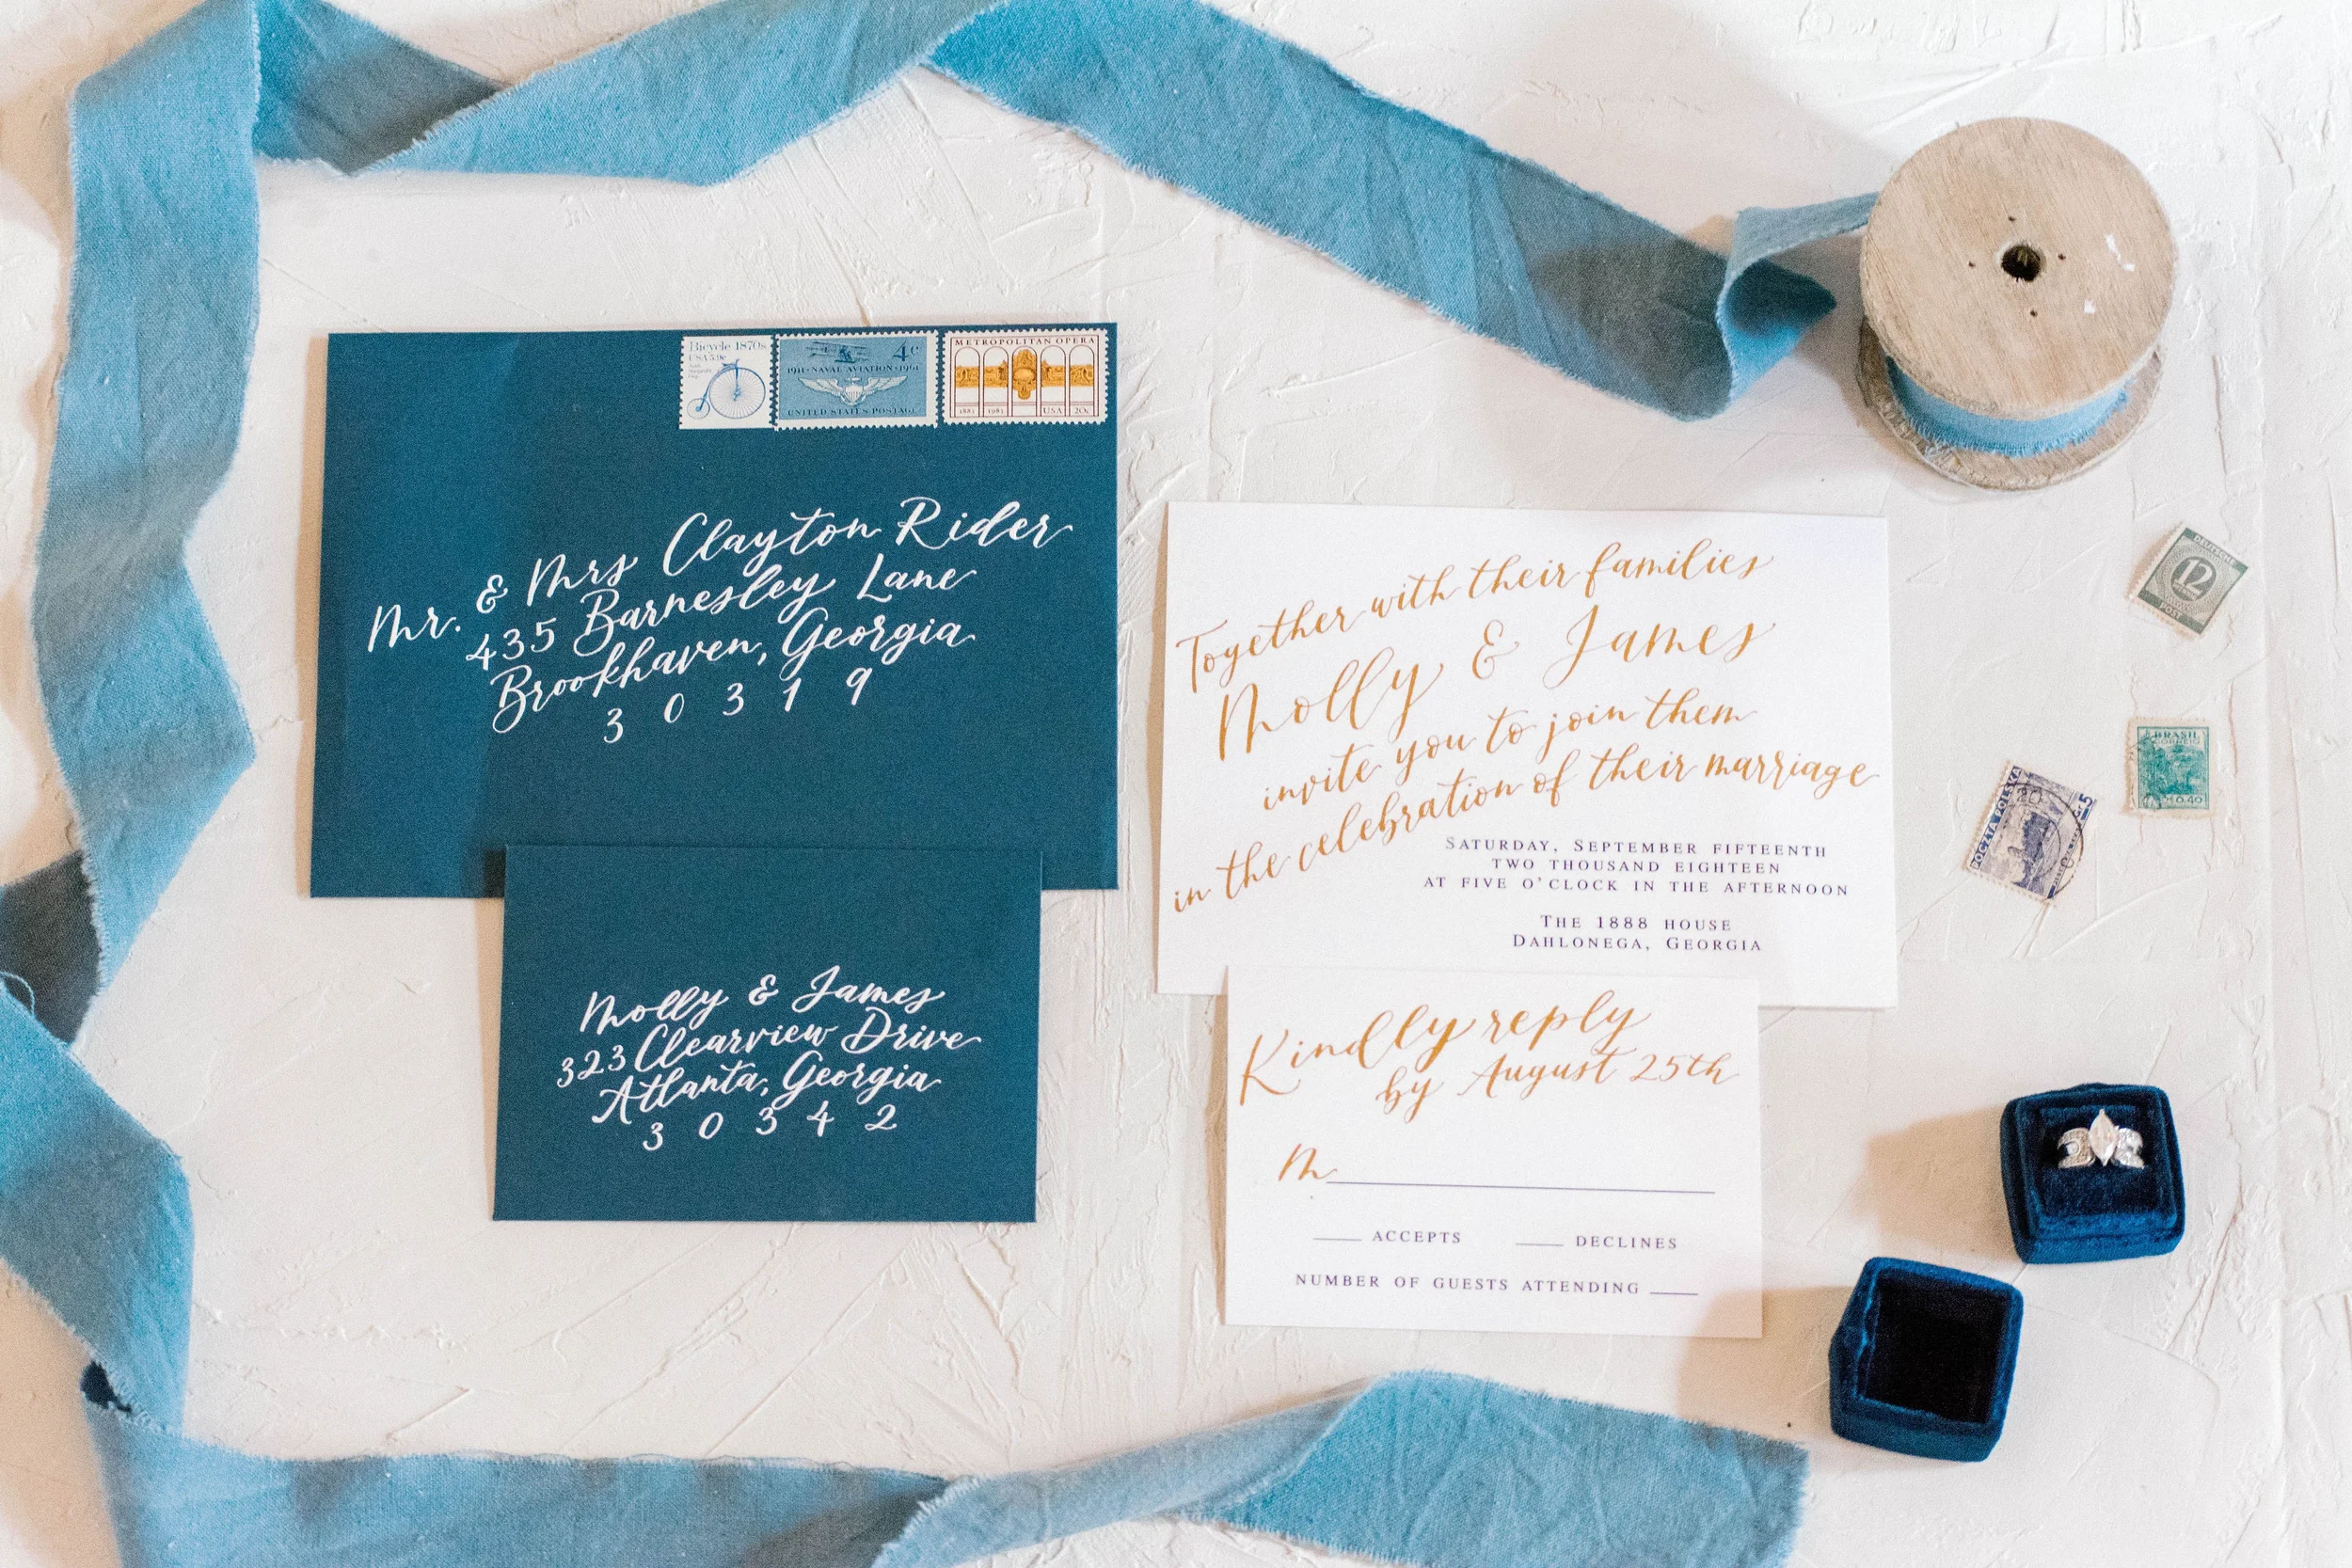 Bicycle 1870s
USA 5.9c
4c
1911·NAVAL AVIATION·1961
UNITED STATES POSTAGE
METROPOLITAN OPERA
1883 1983 USA 20c
Mr. & Mrs Clayton Rider
435 Barnesley Lane
Brookhaven, Georgia
30319
Molly & James
323 Clearview Drive
Atlanta, Georgia
30342
Together with their families
Molly & James
invite you to join them
in the celebration of their marriage
SATURDAY, SEPTEMBER FIFTEENTH
TWO THOUSAND EIGHTEEN
AT FIVE O'CLOCK IN THE AFTERNOON
THE 1888 HOUSE
DAHLONEGA, GEORGIA
Kindly reply
by August 25th
M
ACCEPTS DECLINES
NUMBER OF GUESTS ATTENDING
DEUTSCHE
12
POST
BRASIL
CORREIO
0,40
POCZTA POLSKA
5